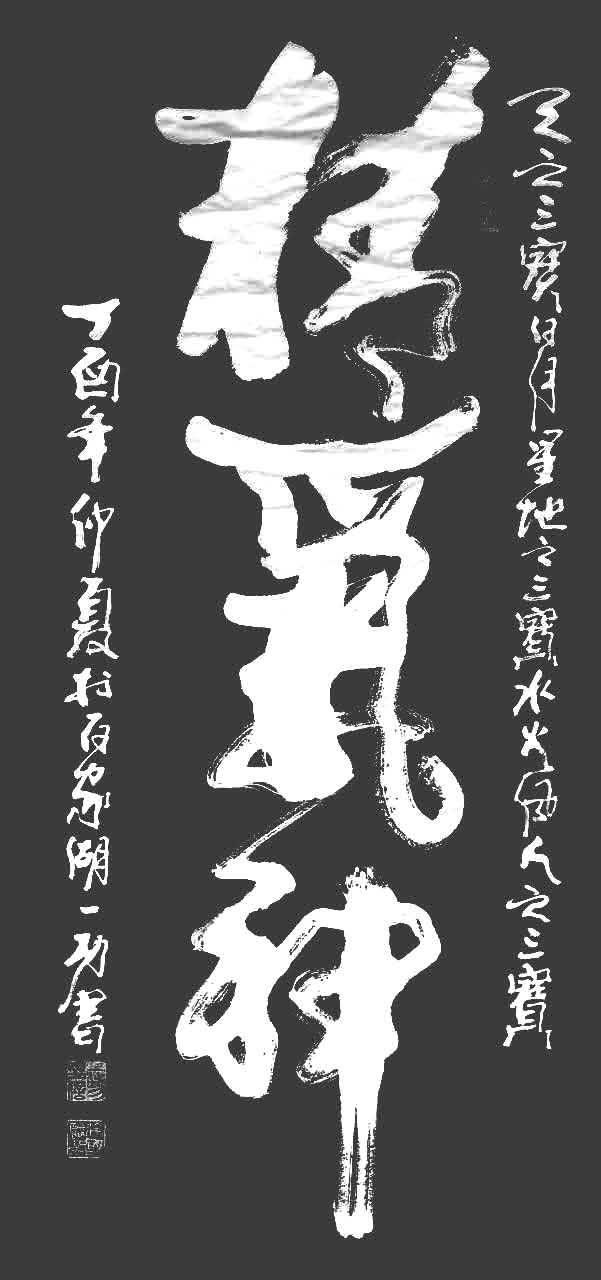 天之三寶日月星地之三寶水火風人之三寶
精氣神
丁酉年仲夏於百家湖一功書